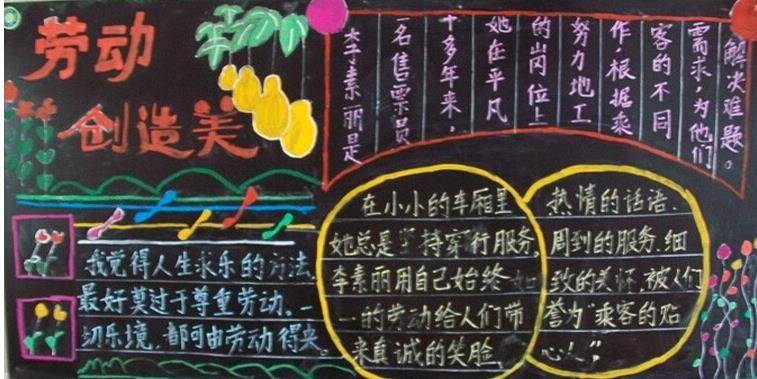 劳动
创造美
李素丽是
一名售票员
十多年来，
她在平凡
的岗位上
努力地工
作，根据乘
客的不同
需求，为他们
解决难题。
我觉得人生求乐的方法
最好莫过于尊重劳动。一
切乐境，都可由劳动得来。
在小小的车厢里
她总是持穿行服务。
李素丽用自己始终如
一的劳动给人们带
来真诚的笑脸
热情的话语、
周到的服务、细
致的关怀，被人们
誉为“乘客的贴
心人”。